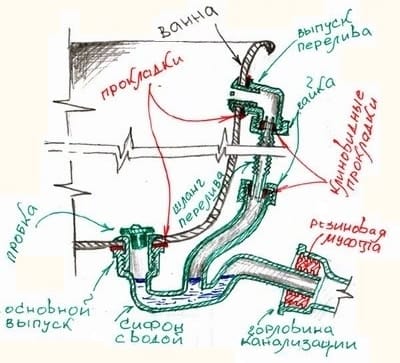 ванна
выпуск
перелива
прокладки
гайка
клиновидные
прокладки
шланг
перелива
пробка
резиновая
муфта
основной
выпуск
сифон
с водой
горловина
канализации